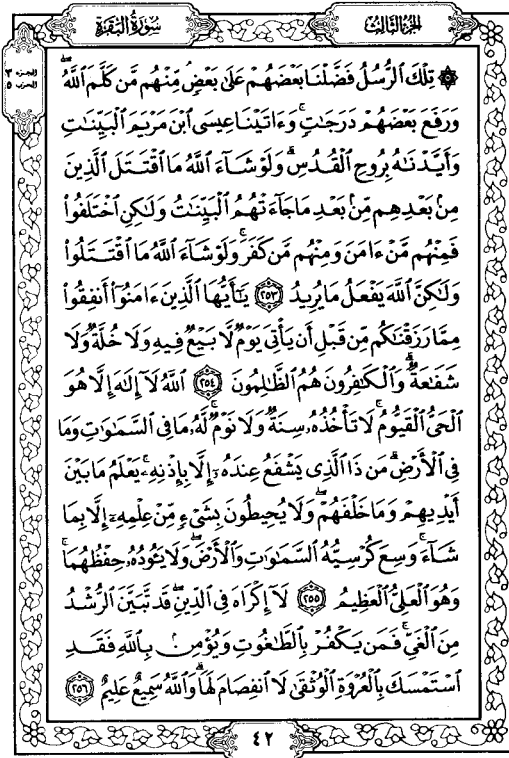 الجزء الثالث
سورة البقرة
الجزء ٣
الحزب ٥
۞ تِلْكَ ٱلرُّسُلُ فَضَّلْنَا بَعْضَهُمْ عَلَىٰ بَعْضٍ مِّنْهُم مَّن كَلَّمَ ٱللَّهُ
وَرَفَعَ بَعْضَهُمْ دَرَجَٰتٍ وَءَاتَيْنَا عِيسَى ٱبْنَ مَرْيَمَ ٱلْبَيِّنَٰتِ
وَأَيَّدْنَٰهُ بِرُوحِ ٱلْقُدُسِ وَلَوْ شَآءَ ٱللَّهُ مَا ٱقْتَتَلَ ٱلَّذِينَ
مِنۢ بَعْدِهِم مِّنۢ بَعْدِ مَا جَآءَتْهُمُ ٱلْبَيِّنَٰتُ وَلَٰكِنِ ٱخْتَلَفُوا۟
فَمِنْهُم مَّنْ ءَامَنَ وَمِنْهُم مَّن كَفَرَ وَلَوْ شَآءَ ٱللَّهُ مَا ٱقْتَتَلُوا۟
وَلَٰكِنَّ ٱللَّهَ يَفْعَلُ مَا يُرِيدُ ٢٥٣ يَٰٓأَيُّهَا ٱلَّذِينَ ءَامَنُوٓا۟ أَنفِقُوا۟
مِمَّا رَزَقْنَٰكُم مِّن قَبْلِ أَن يَأْتِىَ يَوْمٌ لَّا بَيْعٌ فِيهِ وَلَا خُلَّةٌ وَلَا
شَفَٰعَةٌ وَٱلْكَٰفِرُونَ هُمُ ٱلظَّٰلِمُونَ ٢٥٤ ٱللَّهُ لَآ إِلَٰهَ إِلَّا هُوَ
ٱلْحَىُّ ٱلْقَيُّومُ لَا تَأْخُذُهُۥ سِنَةٌ وَلَا نَوْمٌ لَّهُۥ مَا فِى ٱلسَّمَٰوَٰتِ وَمَا
فِى ٱلْأَرْضِ مَن ذَا ٱلَّذِى يَشْفَعُ عِندَهُۥٓ إِلَّا بِإِذْنِهِۦ يَعْلَمُ مَا بَيْنَ
أَيْدِيهِمْ وَمَا خَلْفَهُمْ وَلَا يُحِيطُونَ بِشَىْءٍ مِّنْ عِلْمِهِۦٓ إِلَّا بِمَا
شَآءَ وَسِعَ كُرْسِيُّهُ ٱلسَّمَٰوَٰتِ وَٱلْأَرْضَ وَلَا يَـُٔودُهُۥ حِفْظُهُمَا
وَهُوَ ٱلْعَلِىُّ ٱلْعَظِيمُ ٢٥٥ لَآ إِكْرَاهَ فِى ٱلدِّينِ قَد تَّبَيَّنَ ٱلرُّشْدُ
مِنَ ٱلْغَىِّ فَمَن يَكْفُرْ بِٱلطَّٰغُوتِ وَيُؤْمِنۢ بِٱللَّهِ فَقَدِ
ٱسْتَمْسَكَ بِٱلْعُرْوَةِ ٱلْوُثْقَىٰ لَا ٱنفِصَامَ لَهَا وَٱللَّهُ سَمِيعٌ عَلِيمٌ ٢٥٦
٤٢